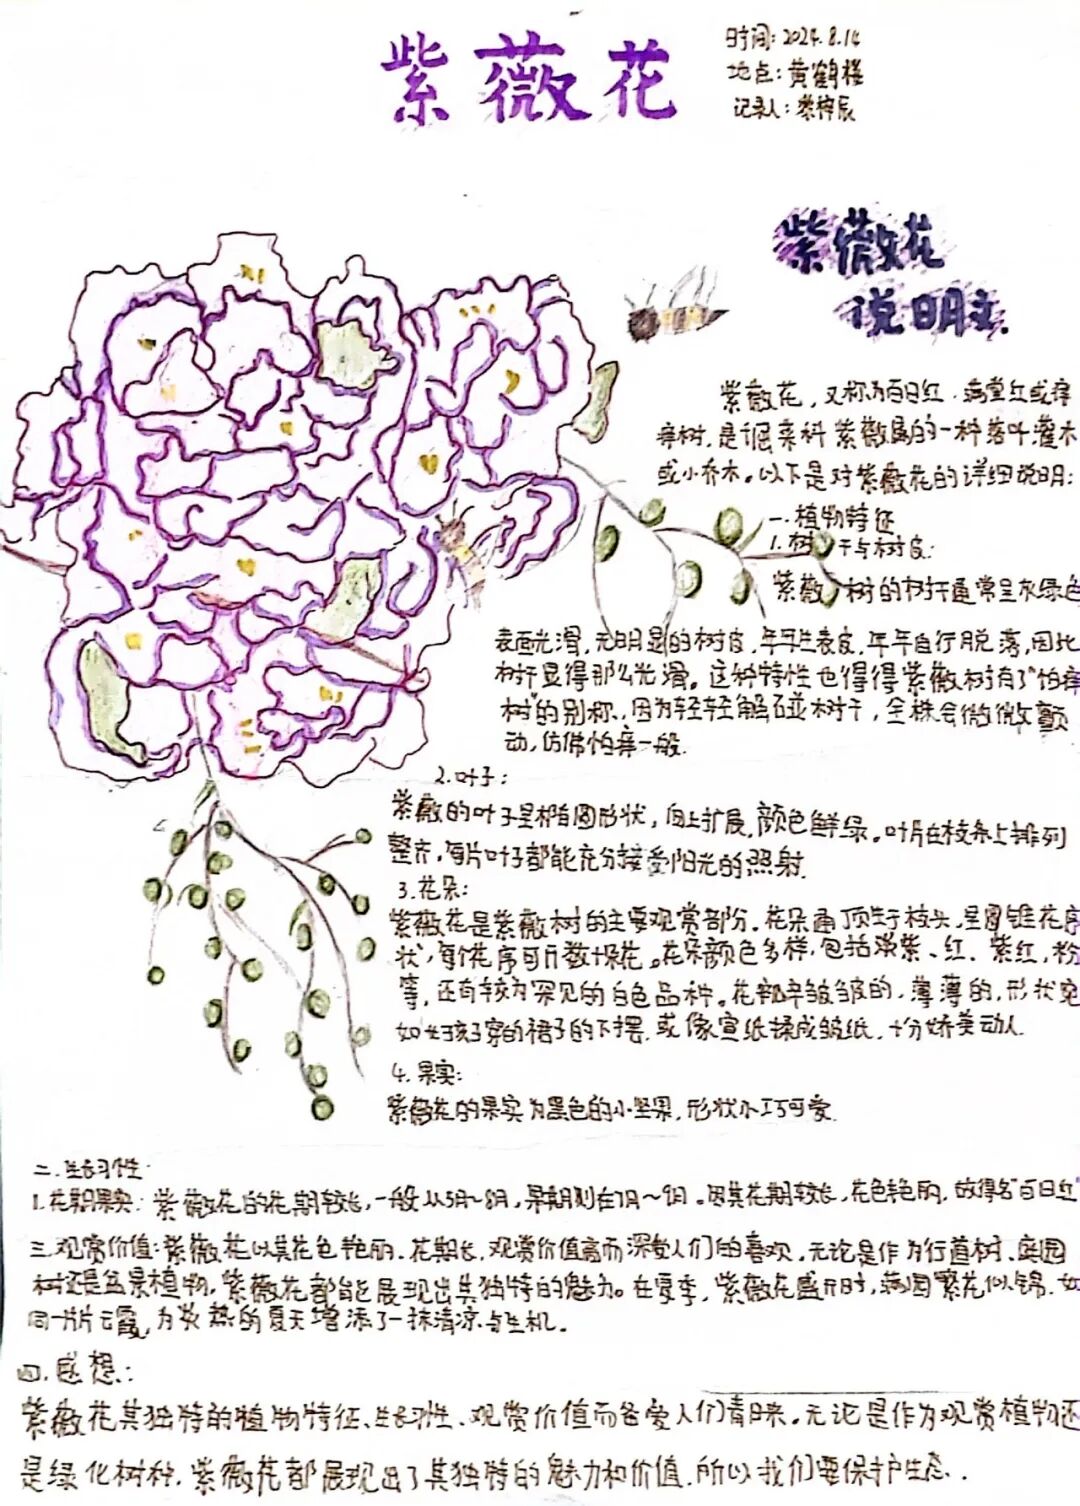 紫薇花
时间:2024.8.14
地点:黄鹤楼
记录人:梓辰
紫薇花
说明文.
紫薇花,又称为百日红.满堂红或痒
痒树.是千屈菜科紫薇属的一种落叶灌木
或小乔木。以下是对紫薇花的详细说明:
一.植物特征
1.树干与树皮:
紫薇树的树干通常呈灰绿色
表面光滑,无明显的树皮,年年生表皮,年年自行脱落,因此
树干显得那么光滑。这种特性也得得紫薇树有了"怕痒
树"的别称.因为轻轻触碰树干,全株会微微颤
动,仿佛怕痒一般.
2.叶子:
紫薇的叶子呈椭圆形状,向上扩展,颜色鲜绿。叶片在枝条上排列
整齐,每片叶子都能充分接受阳光的照射.
3.花朵:
紫薇花是紫薇树的主要观赏部分.花朵通顶生于枝头,呈圆锥花序
状,每个花序可有数十朵花。花朵颜色多样,包括淡紫、红、紫红,粉
等,还有较为罕见的白色品种。花瓣皱皱的,薄薄的,形状宛
如女孩子穿的裙子的下摆.或像宣纸揉成皱纸.十分娇美动人
4.果实:
紫薇花的果实为黑色的小坚果,形状小巧可爱.
二.生长习性:
1.花期果实:紫薇花的花期较长,一般从5月~8月,果期则在7月~9月。因其花期较长,花色艳丽,故得名"百日红"
三.观赏价值:紫薇花以其花色艳丽.花期长,观赏价值高而深受人们的喜欢.无论是作为行道树.庭园
树还是盆景植物,紫薇花都能展现出其独特的魅力。在夏季,紫薇花盛开时,满园繁花似锦.如
同一片片云霞,为炎热的夏天增添了一抹清凉与生机。
四.感想:
紫薇花其独特的植物特征、生长习性、观赏价值而备受人们青睐。无论是作为观赏植物还
是绿化树种.紫薇花都展现出了其独特的魅力和价值.所以我们要保护生态.